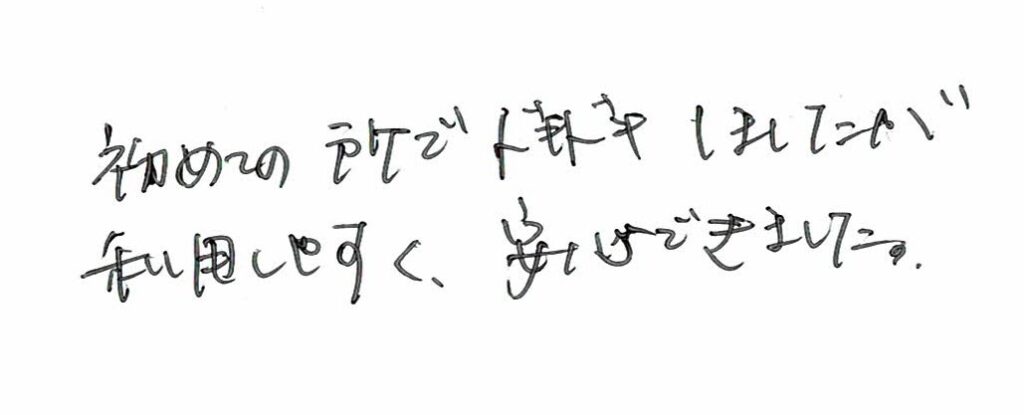 初めての所でドキドキしましたが
利用しやすく、安心できました。